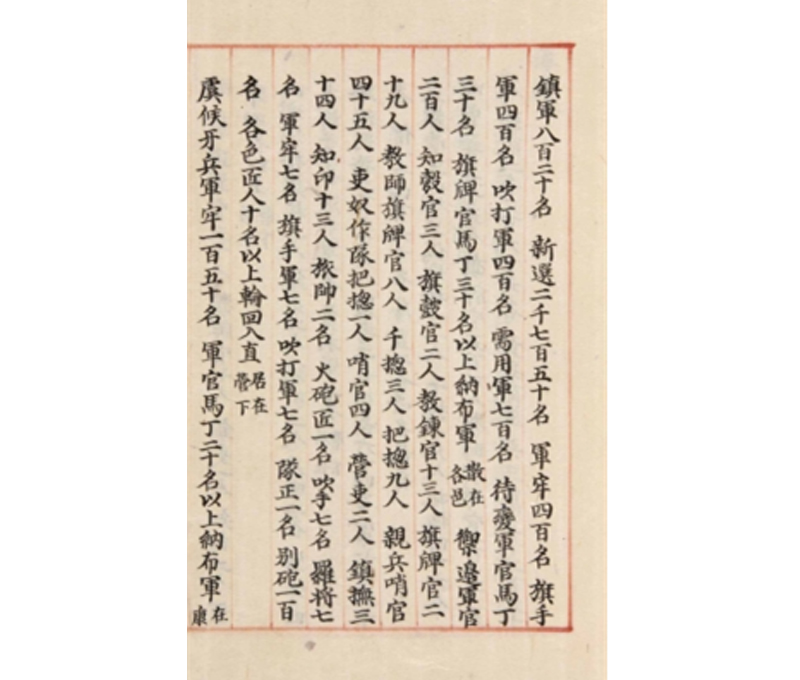 鎮軍八百二十名 新選二千七百五十名 軍牢四百名 旗手
軍四百名 吹打軍四百名 需用軍七百名 待變軍官馬丁
三十名 旗牌官馬丁三十名以上納布軍 散在各邑 禦邊軍官
二百人 知彀官三人 旗鼓官二人 教鍊官十三人 旗牌官二
十九人 教師旗牌官八人 千摠三人 把摠九人 親兵哨官
四十五人 吏奴作隊把摠一人 哨官四人 營吏二人 鎮撫三
十四人 知印十三人 旅帥二名 火砲匠一名 吹手七名 羅將七
名 軍牢七名 旗手軍七名 吹打軍七名 隊正一名 別砲一百
名 各色匠人十名以上輪回入直 居在營下
虞候牙兵軍牢一百五十名 軍官馬丁二十名以上納布軍 在康